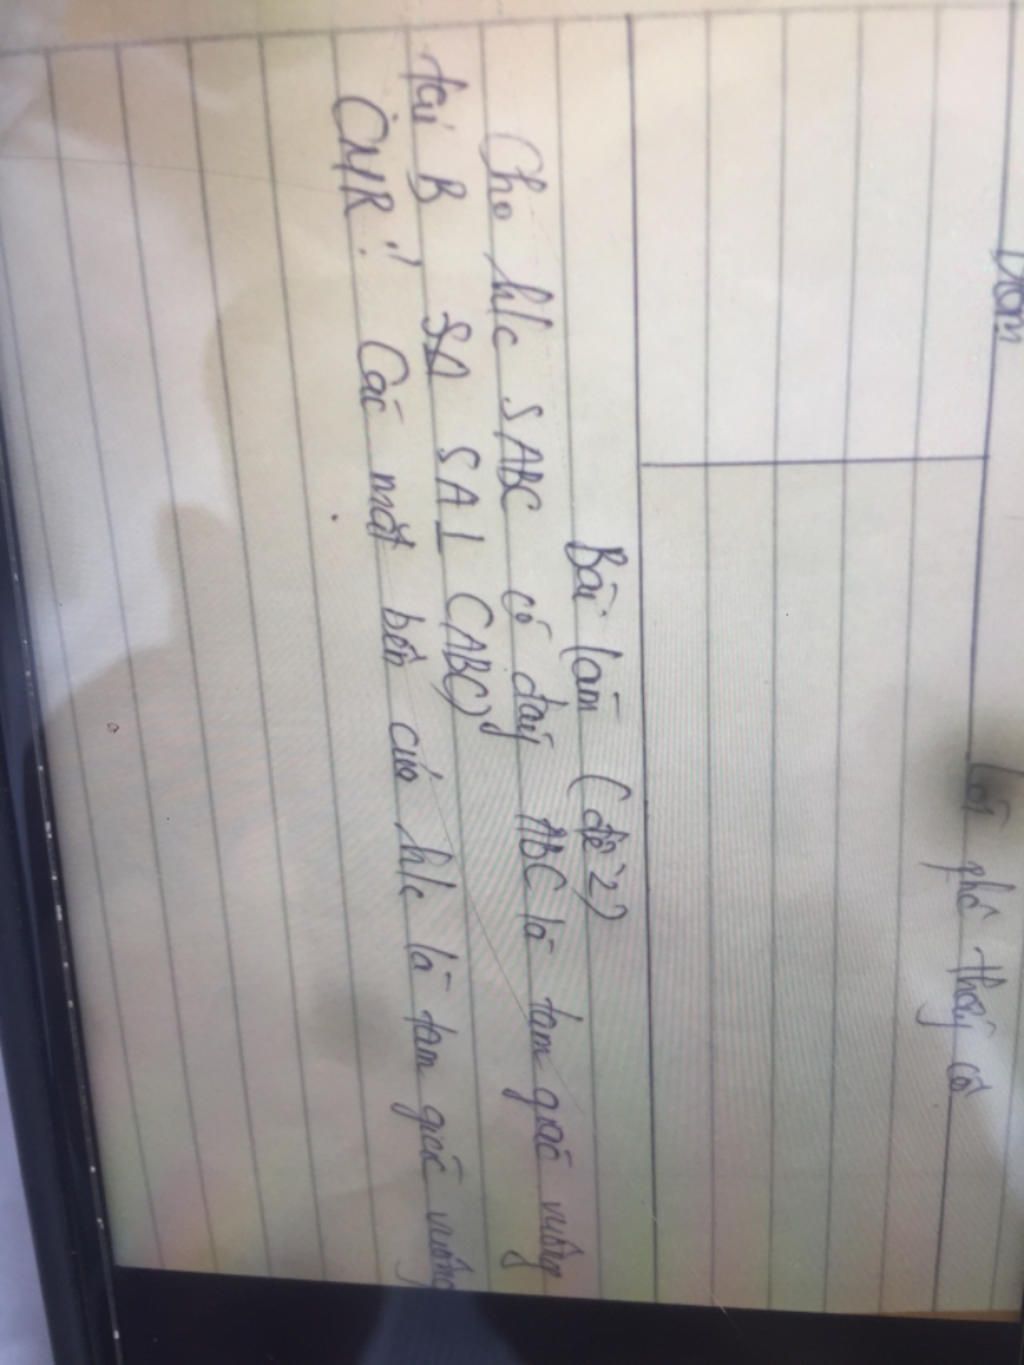 Lời phê thầy cô
Bài làm (đề 2)
Cho h/c SABC có đáy ABC là tam giác vuông
tại B SA SA ⊥ (ABC)
CMR: Các mặt bên của h/c là tam giác vuông